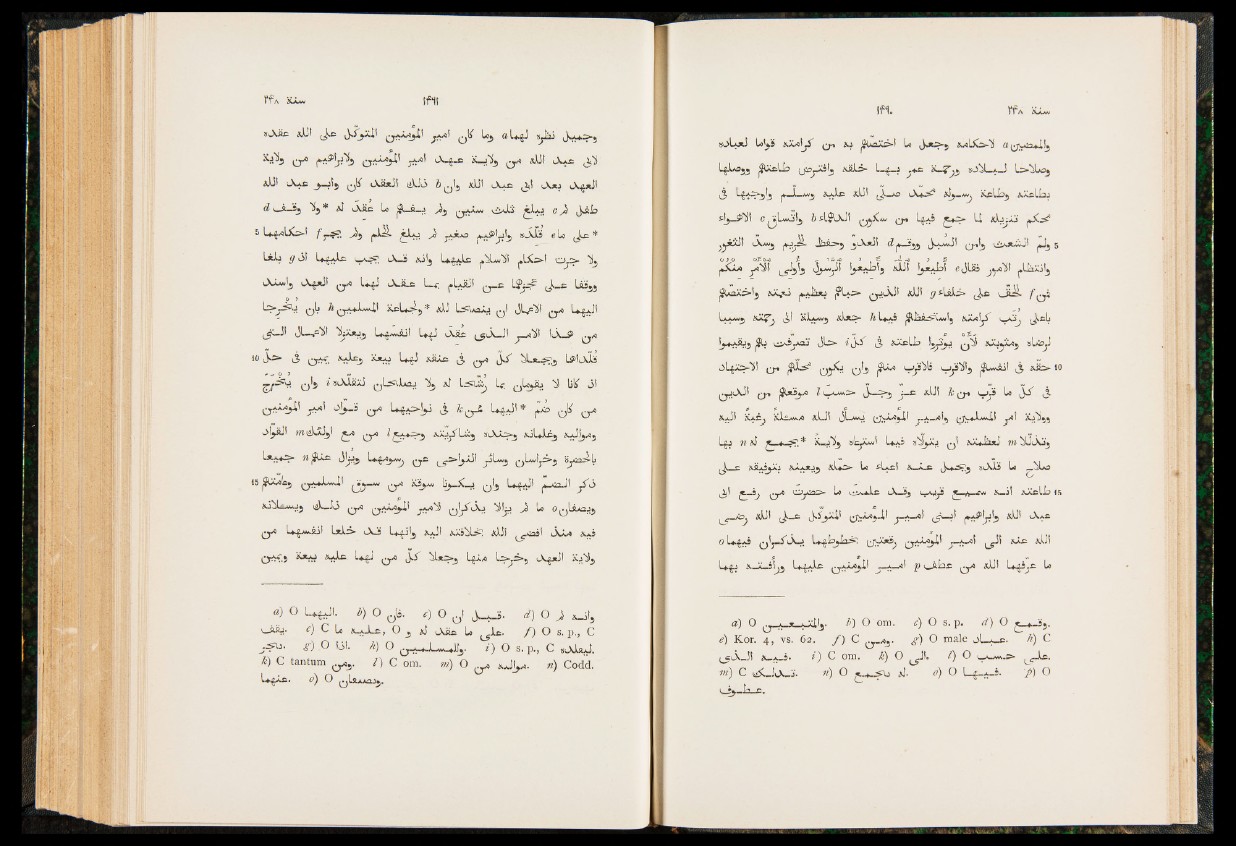 ١٤٩٠ سنة ٢٤٨
a لاحكامه وجعل ما اختصّهم به من كرامته قواما لعباده
وصلاحا لبلاده ورحمة عمر بها خلقه وافترض طاعتهم ووصلها
بطاعته وطاعة رسوله محمّد صلّى الله عليه وسلم واوجبها فى
محكم تنزيله لما جمع فيها من سكون الدهماء b واتّساق c الاهواء
5 ولمّ الشعث وامن السُبُل ووقم d العدوّ وحفظ الحريم وسدّ الثغور
وانتظام الامور فقال e أَطِيعُوا ٱللّٰهَ وَأَطِيعُوا ٱلرَّسُولَ وَأُولِى ٱلْأَمْرِ مِنْكُمْ
فمن f الحقّ على خلفاء g الله الذين حباهم بعظيم نعمته واختصّهم
باعلى رُتَب كرامته واستحفظهم فيما h جعله وسيلة الى رحمته وسببا
لرضاه ومثوبته لأَنْ يؤثروا طاعته فى كلّ i حال تصرّفت بهم ويقيموا
10 حقّه فى انفسهم والاقرب فالاقرب منهم وان يكون محلّهم من الاجتهاد
فى كلّ ما قرّب من k الله عزّ وجلّ حسب l موقعهم من الدين
وولاية امر المسلمين وامير المؤمنين يسأل الله مسئلة رغبة اليه
وتذلّلا m لعظمته ان يتولّاه فيما استرعاه ولاية *يجمع له n بها
صلاح ما قلّده ويحمل عنه اعباء ما حمّله ويعينه بتوفيقه على
15 طاعته انه سميع قريب وقد علمت ما حضرت من رفع ابى
عبد الله وابراهيم ابنى امير المؤمنين المتوكّل على الله رضى
الله عنه الى امير المؤمنين رقعتين بخطوطهما يذكران فيهما o
ما عرّفهما الله من عطف p امير المؤمنين عليهما ورأفته بهما
a) O والمتتبعين. b) O om. c) O s. p. d) O وقمع.
e) Kor. 4, vs. 62. f) C ومن. g) O male عباد. h) C
فيه الذى. i) C om. k) O الى. l) O على حسب.
m) C تذلك. n) O له باجمع. o) O فيها. p) O
عطوف.
سنة ٢٤٨ ١٤٩١
وجميل نظره لهما a وما كان امير المؤمنين المتوكّل على الله عقده
لابى عبد الله من ولاية عهد امير المؤمنين ولابراهيم من ولاية
العهد بعد ابى عبد الله وانّ b ذلك العقد كان وابو عبد الله
طفل لم c يبلغ ثلث سنين ولم يفهم ما عُقد له *ولا وقف d
5 *على ما e قُلّده وابراهيم صغير لم يبلغ الحلم ولم يجز f احكامهما
ولا جرت احكام الاسلام عليهما وانه قد يجب عليهما اذ g بلغا
ووقفا على عجزهما عن القيام بما عقد لهما من العهد واسند
اليهما من الاعمال ان ينصحا لله *وجماعة المسلمين h بان يُخْرجا
من هذا الامر الذى عُقد لهما انفسَهما ويعتزلا الاعمال التى
10 قُلّداها ويجعلا كلّ من فى عنقه لهما بيعة وعليه يمين فى حلّ
اذ كانا لا يقومان بما رُشّحا له ولا يصلحان لتقلّده i وان يُخْرَج
من كان ضُمّ *اليهما ممّن k فى نواحيهما من قوّاد امير المؤمنين
ومواليه وغلمانه وجنده وشاكريّته وجميع l من مع اولئك m القوّاد
بالحضرة وخراسان وسائر النواحى عن رسومهما ويُزال عنهم n جميعا
15 ذكر الضمّ اليهما وان يكونا سوقة من سوق المسلمين وعامّتهم
ويصفان o ما لم يزالا يذكران لامير المؤمنين من ذلك ويسئلانه
فيه منذ افضى الله بخلافته اليه وانهما قد خلعا انفسهما من
ولاية العهد وخرجا منها وجعلا كلّ من لهما عليه بيعة ويمين
a) O اليهما. b) O فان. c) O قبل ان. d) O وانه لم
يقف. e) C عليه ما, O على ما عقد له و. f) O s. p., C
g) O اذا. h) O وللمسلمين. i) O s. p., C ليقلده.
k) C tantum ومن. l) C om. m) O من مواليه. n) Codd.
عنهما. o) O ويصفان.